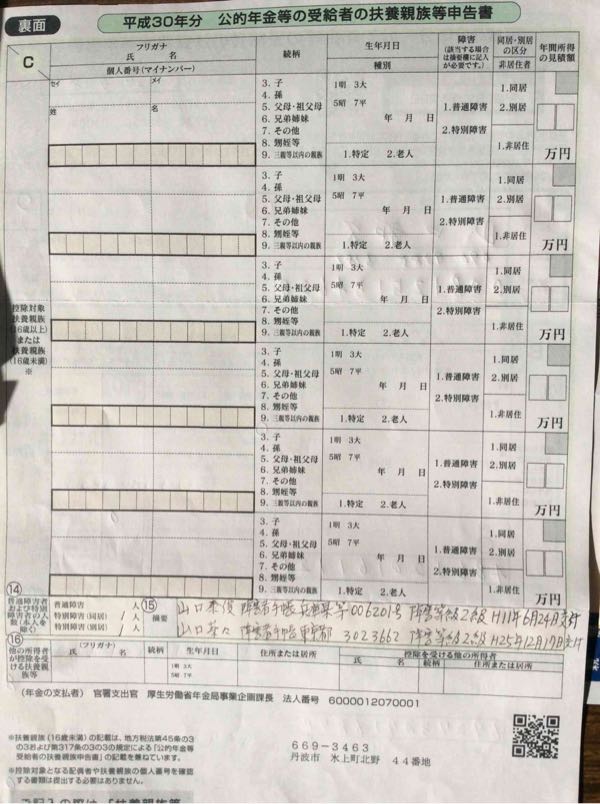 裏面
平成30年分 公的年金等の受給者の扶養親族等申告書
C
フリガナ
氏 名
個人番号(マイナンバー)
続柄
生年月日
種別
障害
(該当する場合は摘要欄に記入が必要です。)
同居・別居の区分
非居住者
年間所得の見積額
控除対象扶養親族(16歳以上)または扶養親族(16歳未満)※
セイ メイ
姓 名
3. 子
4. 孫
5. 父母・祖父母
6. 兄弟姉妹
7. その他
8. 甥姪等
9. 三親等以内の親族
1明 3大
5昭 7平
年 月 日
1.特定 2.老人
1.普通障害
2.特別障害
1.同居
2.別居
1.非居住
万円
3. 子
4. 孫
5. 父母・祖父母
6. 兄弟姉妹
7. その他
8. 甥姪等
9. 三親等以内の親族
1明 3大
5昭 7平
年 月 日
1.特定 2.老人
1.普通障害
2.特別障害
1.同居
2.別居
1.非居住
万円
3. 子
4. 孫
5. 父母・祖父母
6. 兄弟姉妹
7. その他
8. 甥姪等
9. 三親等以内の親族
1明 3大
5昭 7平
年 月 日
1.特定 2.老人
1.普通障害
2.特別障害
1.同居
2.別居
1.非居住
万円
3. 子
4. 孫
5. 父母・祖父母
6. 兄弟姉妹
7. その他
8. 甥姪等
9. 三親等以内の親族
1明 3大
5昭 7平
年 月 日
1.特定 2.老人
1.普通障害
2.特別障害
1.同居
2.別居
1.非居住
万円
3. 子
4. 孫
5. 父母・祖父母
6. 兄弟姉妹
7. その他
8. 甥姪等
9. 三親等以内の親族
1明 3大
5昭 7平
年 月 日
1.特定 2.老人
1.普通障害
2.特別障害
1.同居
2.別居
1.非居住
万円
3. 子
4. 孫
5. 父母・祖父母
6. 兄弟姉妹
7. その他
8. 甥姪等
9. 三親等以内の親族
1明 3大
5昭 7平
年 月 日
1.特定 2.老人
1.普通障害
2.特別障害
1.同居
2.別居
1.非居住
万円
⑭
普通障害者および特別障害者の人数(本人を除く)
普通障害 人
特別障害(同居) 1人
特別障害(別居) 1人
⑮ 摘要
山口 障害者手帳 兵庫県第006201号 障害等級2級 H11年6月24日交付
山口 障害者手帳 東京都 3023662 障害等級2級 H25年12月17日交付
⑯
他の所得者が控除を受ける扶養親族等
(フリガナ)
氏 名
続柄
生年月日
1明 3大
5昭 7平
住所または居所
控除を受ける他の所得者
氏 名
続柄
住所または居所
(年金の支払者) 官署支出官 厚生労働省年金局事業企画課長 法人番号 6000012070001
※扶養親族(16歳未満)の記載は、地方税法第45条の3
の3および第317条の3の3の規定による「公的年金等
受給者の扶養親族申告書」の記載を兼ねています。
※控除対象となる配偶者や扶養親族の個人番号を確認
する書類は提出する必要はありません。
669-3463
丹波市 氷上町北野 44番地